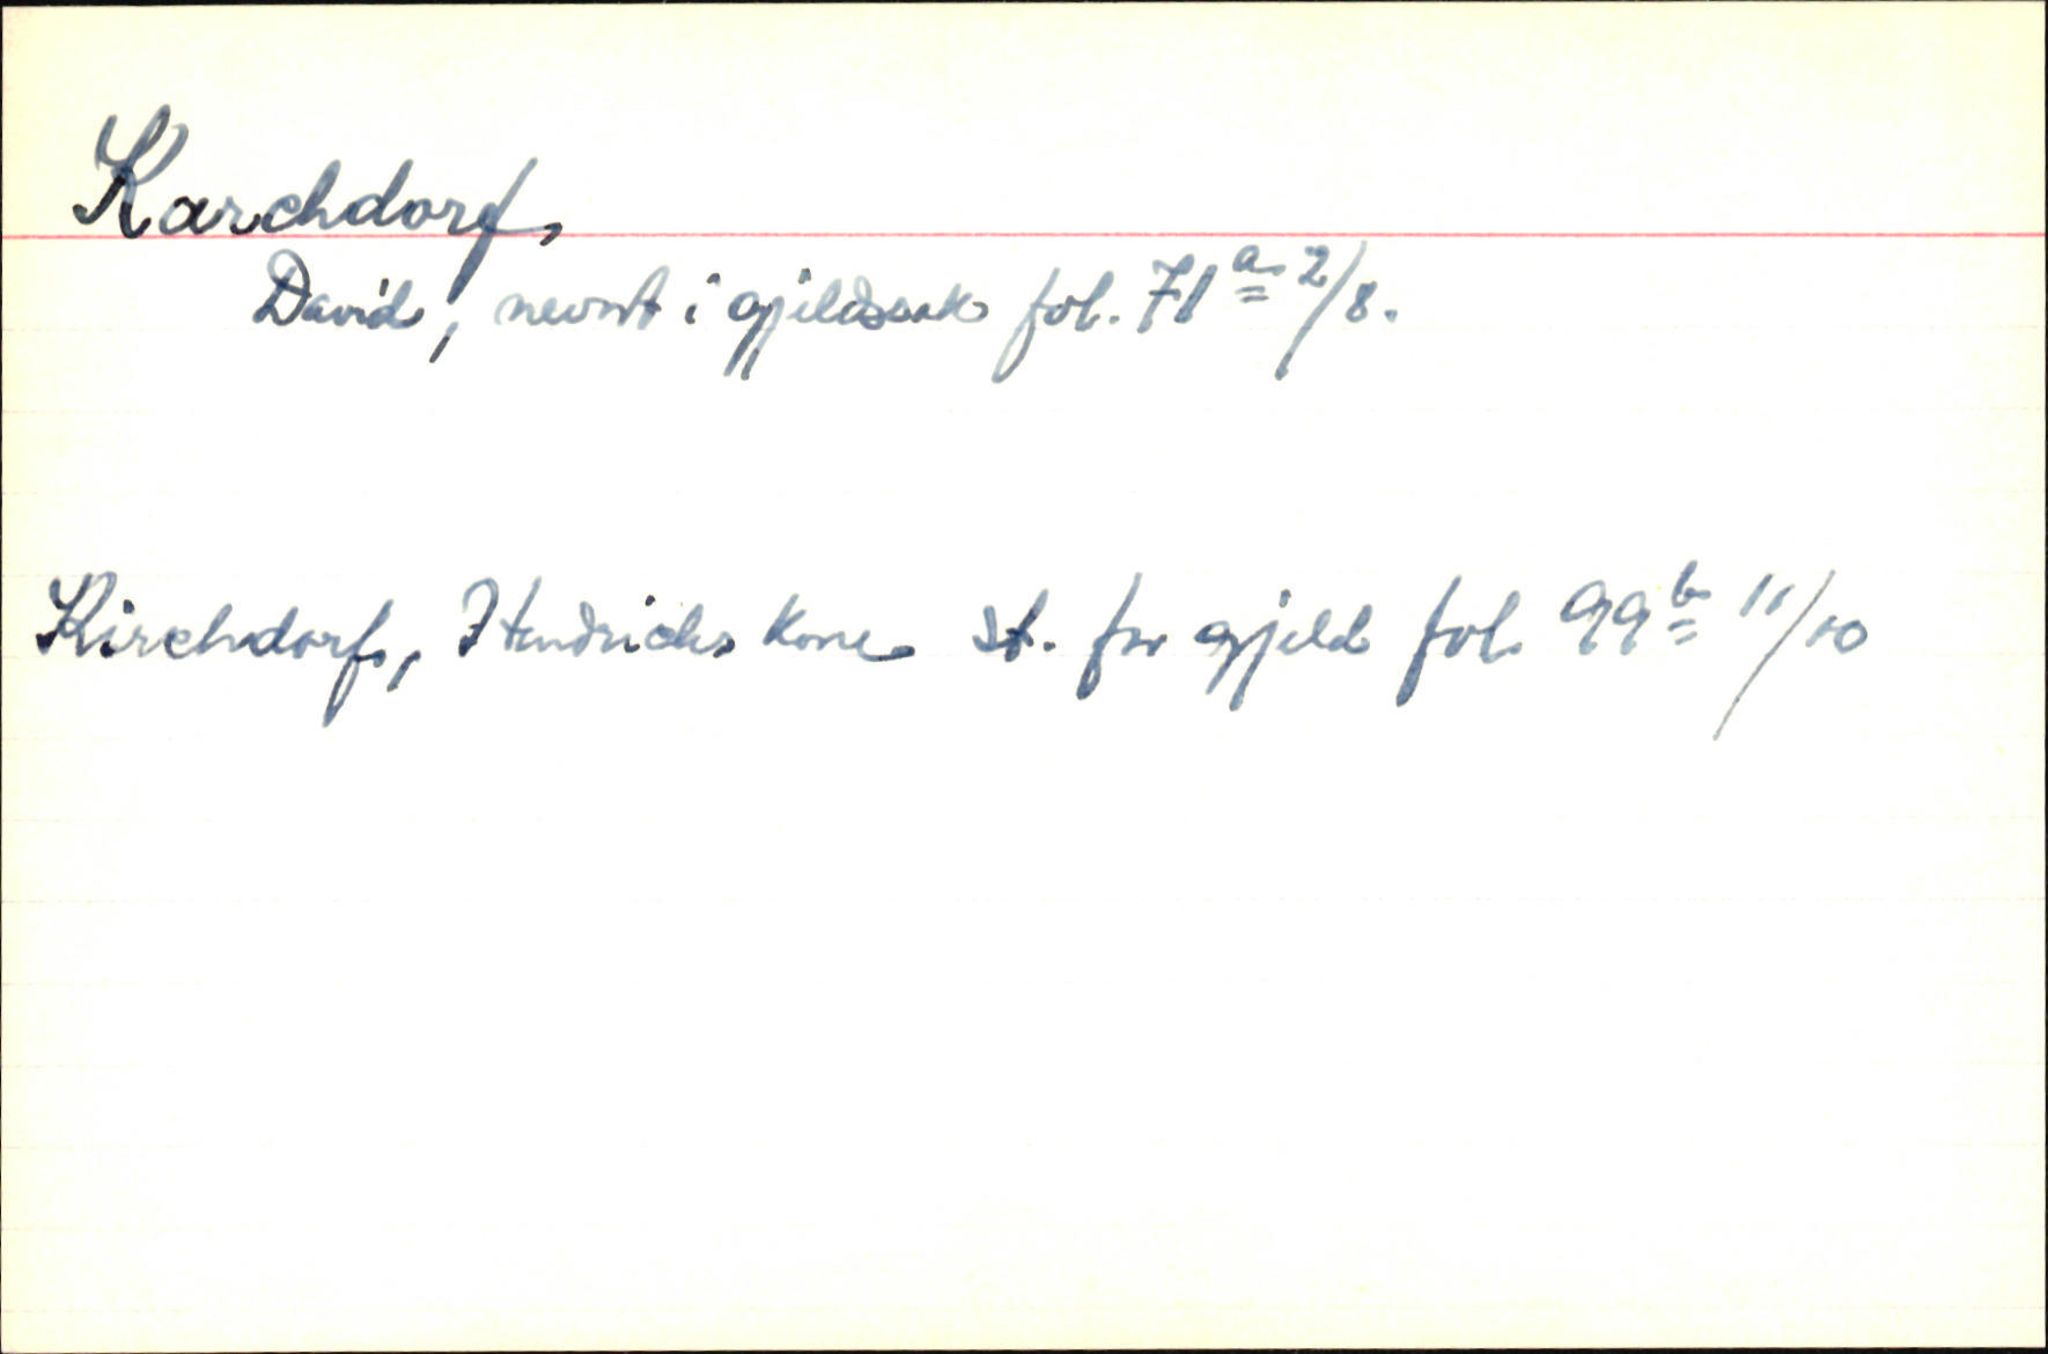 Karchdorf,
David, nevnt i gjeldssak fol. 71ª 2/8.
Kirchdorf, Hendrichs kone st. for gjeld fol. 99ᵇ 11/10